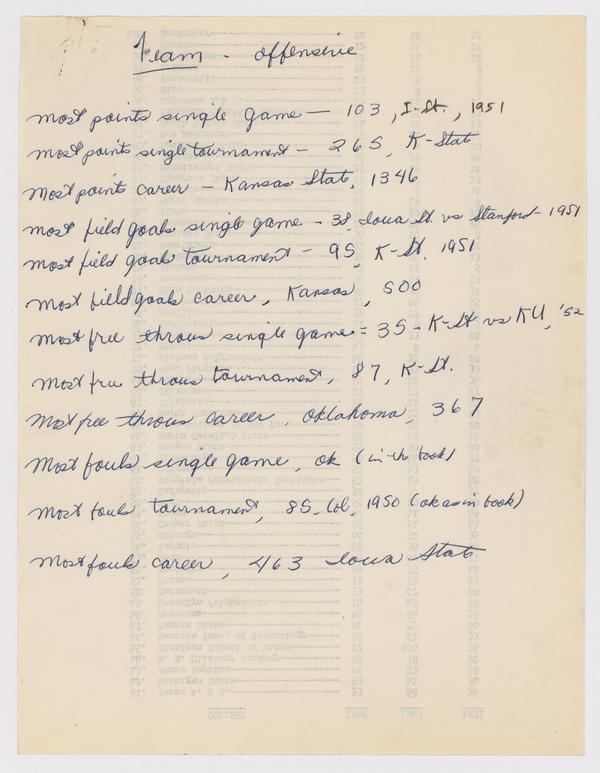 Team - offensive
most points single game — 103, I-St., 1951
most points single tournament - 265, K-State
Most points career - Kansas State, 1346
most field goals single game - 38, Iowa St. vs Stanford - 1951
most field goals tournament - 95, K-St. 1951
Most field goals career, Kansas, 500
Most free throws single game = 35 - K-St vs KU, '52
Most free throws tournament, 87, K-St.
Most free throws career, Oklahoma, 367
Most fouls single game, ok (in the book)
Most fouls tournament, 85, Col, 1950 (ok as in book)
Most fouls career, 463 Iowa State